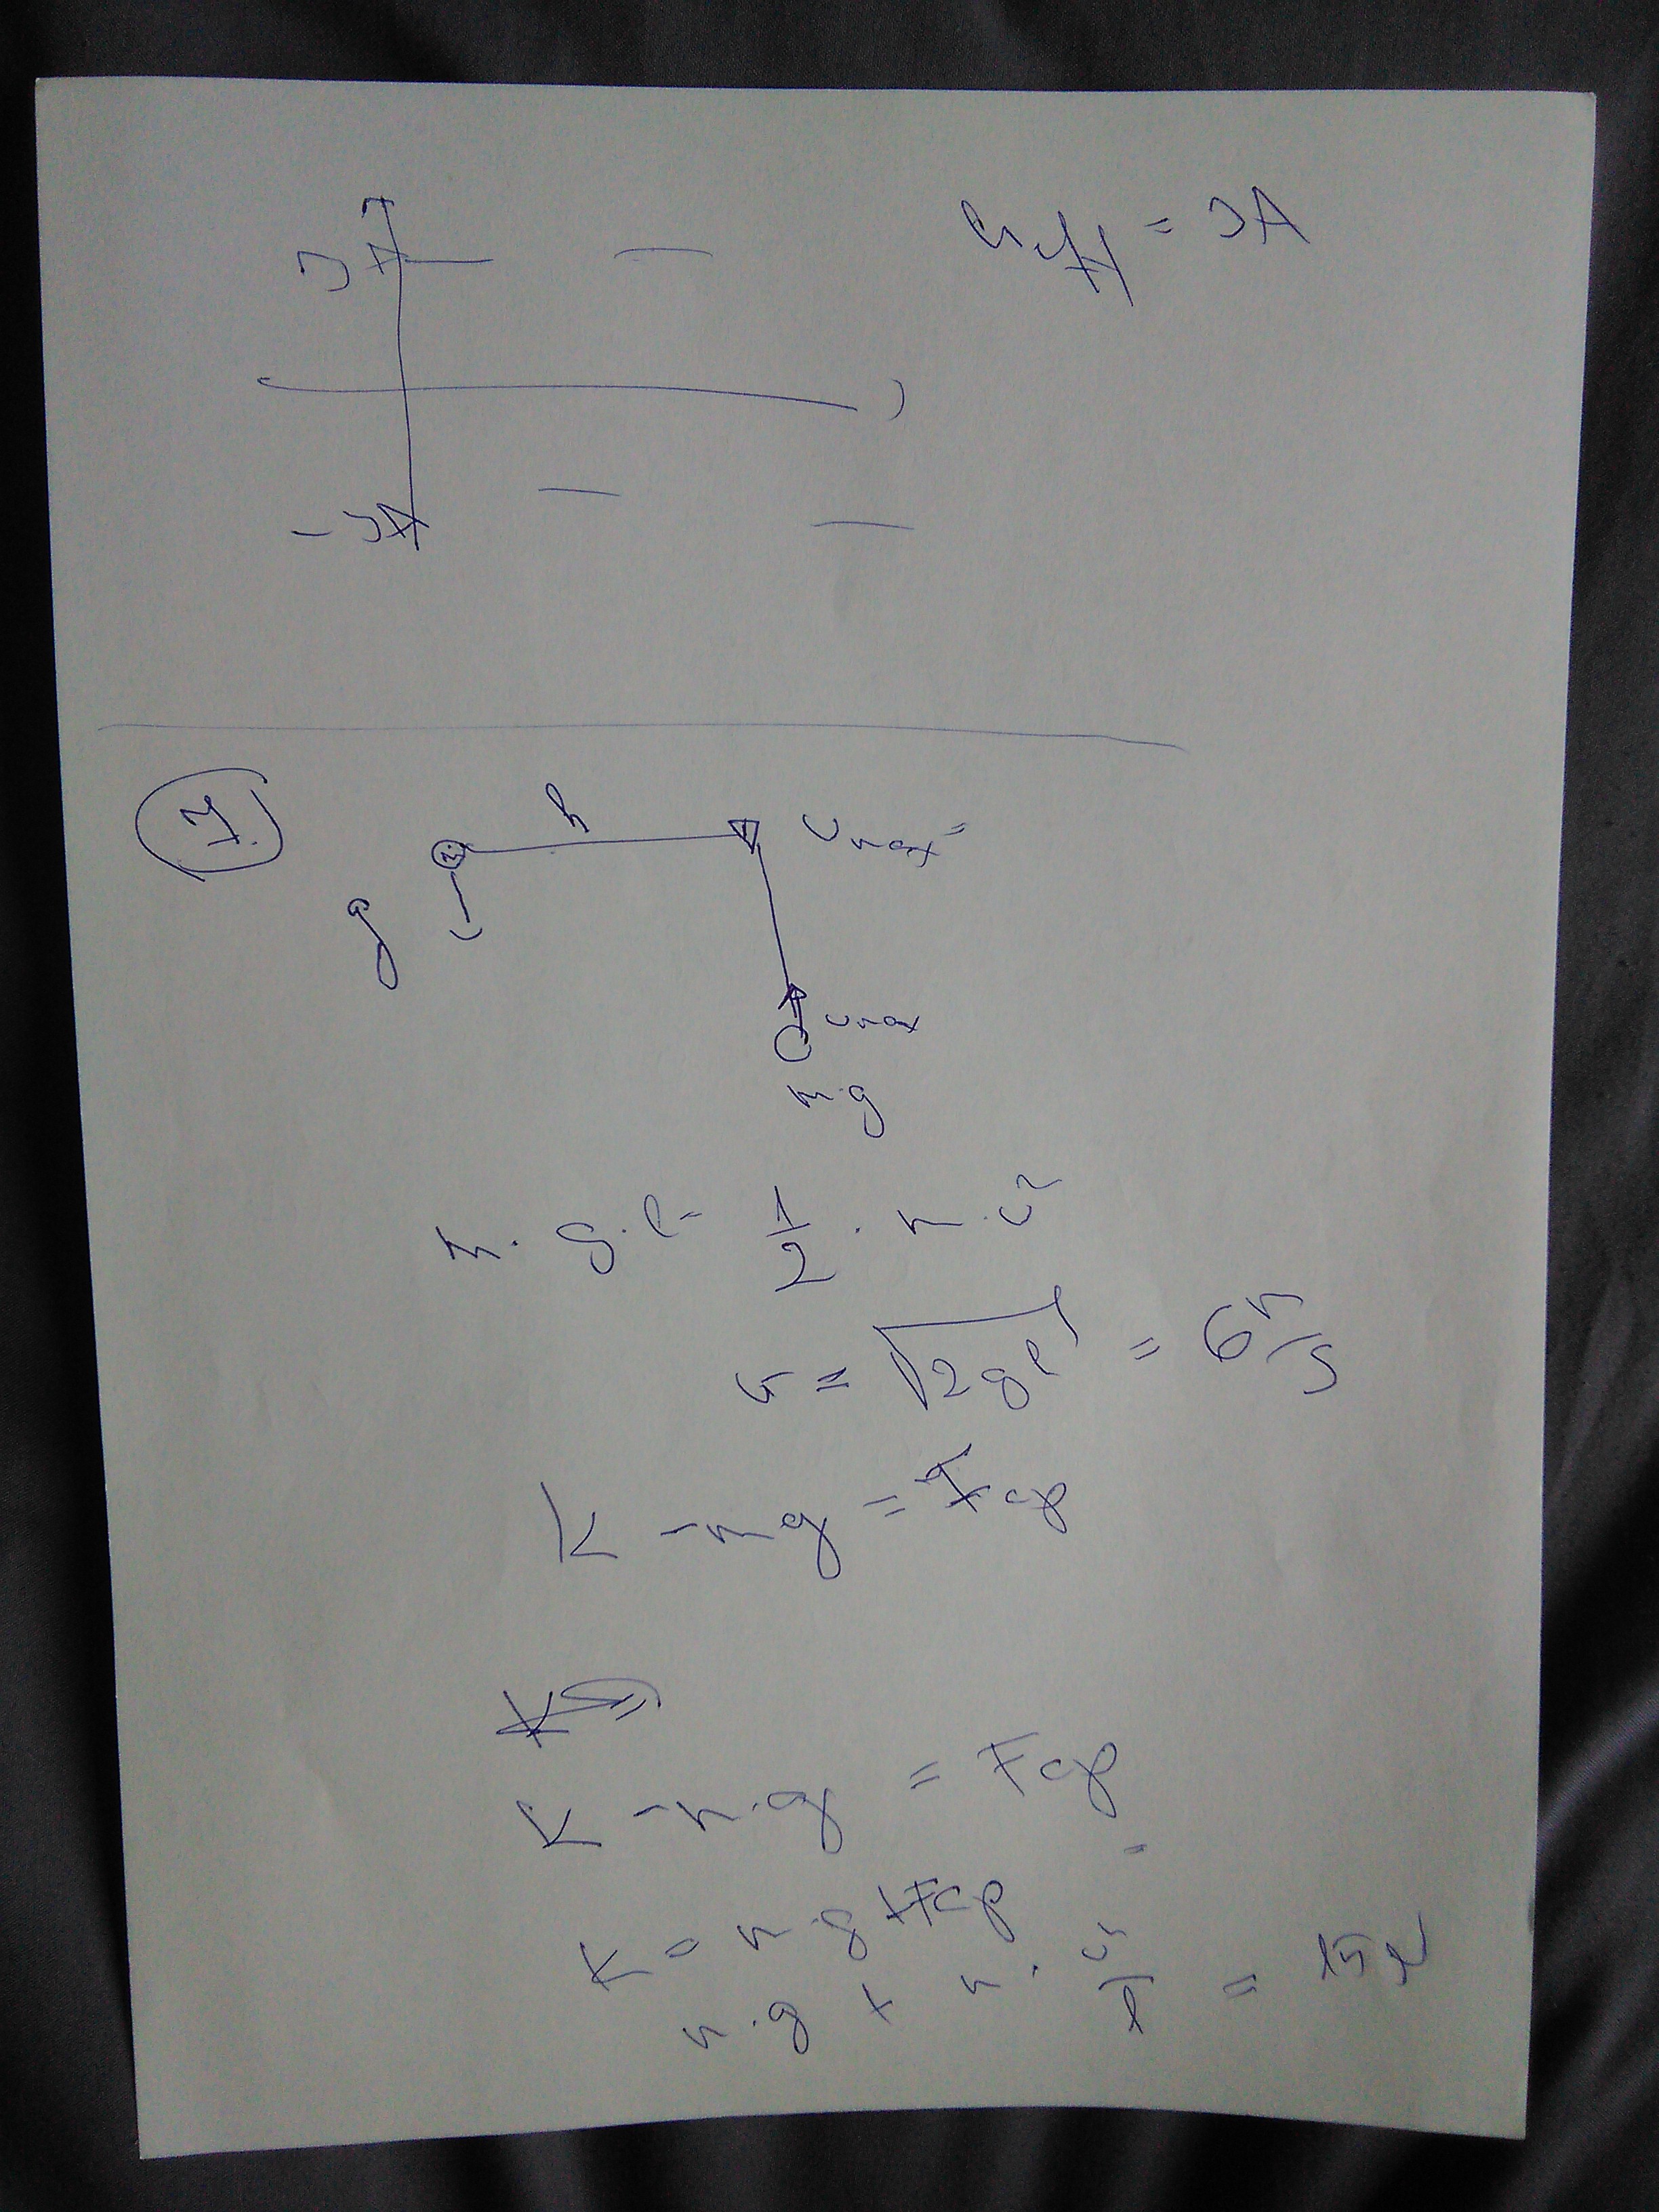 3A
u eff = 3A
-3A
7.
h
v max =
g
v max
m·g
m·g·l = 1/2 · m·v²
v = √2gl = 6 m/s
K - mg = Fcp
K - m·g = Fcp
K = m·g + Fcp =
m·g + m · v²/l = 15N